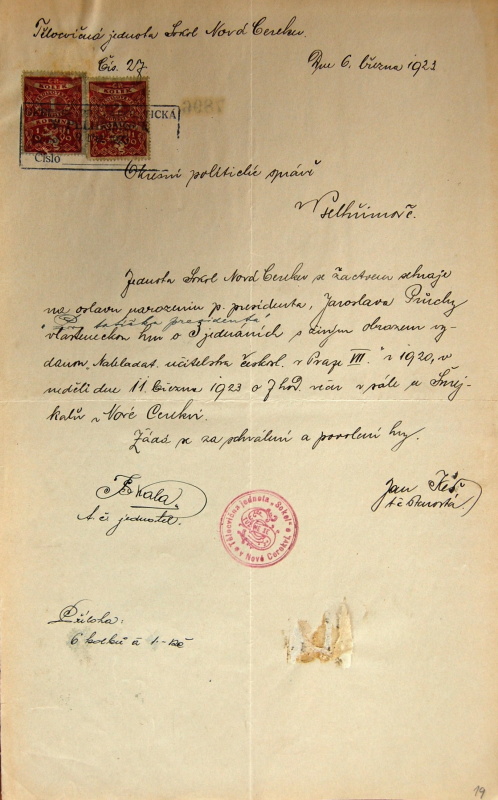 Tělocvičná jednota Sokol Nová Cerekev.
Čís. 27
Dne 6. března 1923
KOLEK
KOLEK
1
2
7896
ICKÁ
Číslo
Okresní politické správě
v Pelhřimově.
Jednota Sokol Nová Cerekev se žactvem sehraje
na oslavu narozenin p. presidenta, Jaroslava Průchy
" Za tatíčka presidenta"
vlasteneckou hru o 3 jednáních s živým obrazem vy-
danou Nakladat. učitelstva českosl. v Praze VII." v 1920, v
neděli dne 11. března 1923 o 7 hod. večer v sále u
kalů v Nové Cerekvi.
Žádá se za schválení a povolení hry.
Jan
t. č. starosta
t. č. jednatel.
Tělocvičná jednota „Sokol"
v Nové Cerekvi.
Příloha:
6 kolků à 1.- Kč
19